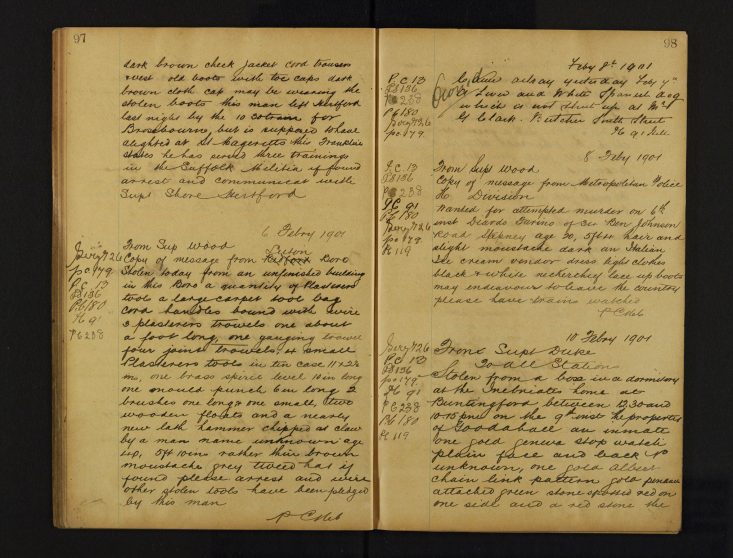 97
dark brown check Jacket cord trousers
vest old boots with toe caps dark
brown cloth cap may be wearing the
stolen boots this man left Hertford
last night by the train for
Broxbourne, but is supposed to have
alighted at St Margeretts this Franklin
states he has served three trainings
in the Suffolk Militia if found
arrest and communicat with
Supt Shore Hertford
6 Febry 1901
From Sup Wood
Luton
Copy of message from Bedford Boro
Stolen today from an unfinished building
in this Boro a quantity of Plasterers
tools a large carpet tool bag
cord handles bound with wire
3 plasterers trowels one about
a foot long, one gauging trowel
four joint trowels, 4 small
Plasterers tools in tin case 11 x 2½
in, one brass spirit level 10 in long
one mould punch 6 in long 2
brushes one long & one small, two
wooden floats and a nearly
new lath hammer chipped at claw
by a man name unknown age
40, 5ft 10 ins rather thin brown
moustache grey tweed hat if
found please arrest and wire
other stolen tools have been pledged
by this man
PC
Serg 726
pc 179
P.C. 13
136
P.C 180
91
PC 238
98
Feby 8th 1901
P.C. 13
136
238
PC 180
Serg 726
pc 179
Came astray yesterday Feby 7th
a Liver and White Spanish dog
which is now shut up at Mr
G Clark. Butcher South Street
8 Feby 1901
P.C. 13
136
PC 238
P.C 91
180
Serg 726
pc 179
Pc 119
From Supt Wood
Copy of message from Metropolitan Police
H Division
Wanted for attempted murder on 6th
inst of Ben Johnson
Road Stepney age 30, 5ft 4 hair and
slight moustache dark an Italian
Ice cream vendor dress light clothes
black & white neckerchief lace up boots
may endeavour to leave the country
please have trains watched
PC
10 Febry 1901
Serg 726
P.C 13
136
pc 179
91
PC 238
PC 180
Pc 119
From Supt Duke
To all Stations
Stolen from a box in a dormitory
at the Inebriates home at
Buntingford between 12,30 and
10-15 pm on the 9th inst the properties
of Goodaball an inmate
one gold geneva stop watch
plain face and back No
unknown, one gold albert
chain link pattern gold pendant
attached green stone spotted red on
one side and a red stone the